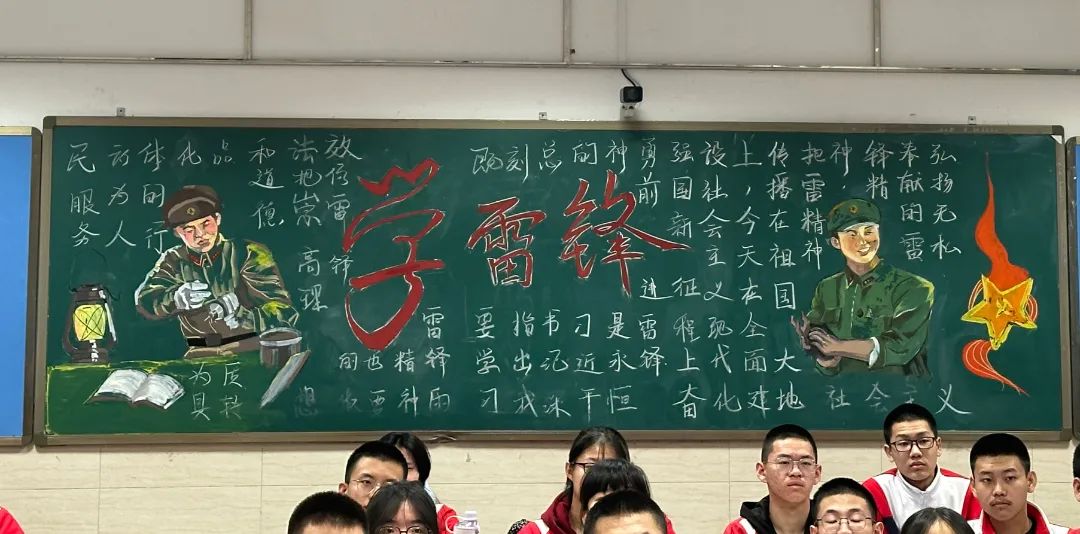 学雷锋
弘扬无私
奉献的雷
锋精
神，
把雷精神
传播在祖国大地
上，今天在全面建
设社会主义现代化
强国新征程上奋
勇前进
雷锋
神是永恒
的习近平
总书记深
刻指出我
要学习
雷锋的
精神
也要
锋
把崇高理想
和道德
品质转
化为具
体的行
动为人
民服务
社会主义